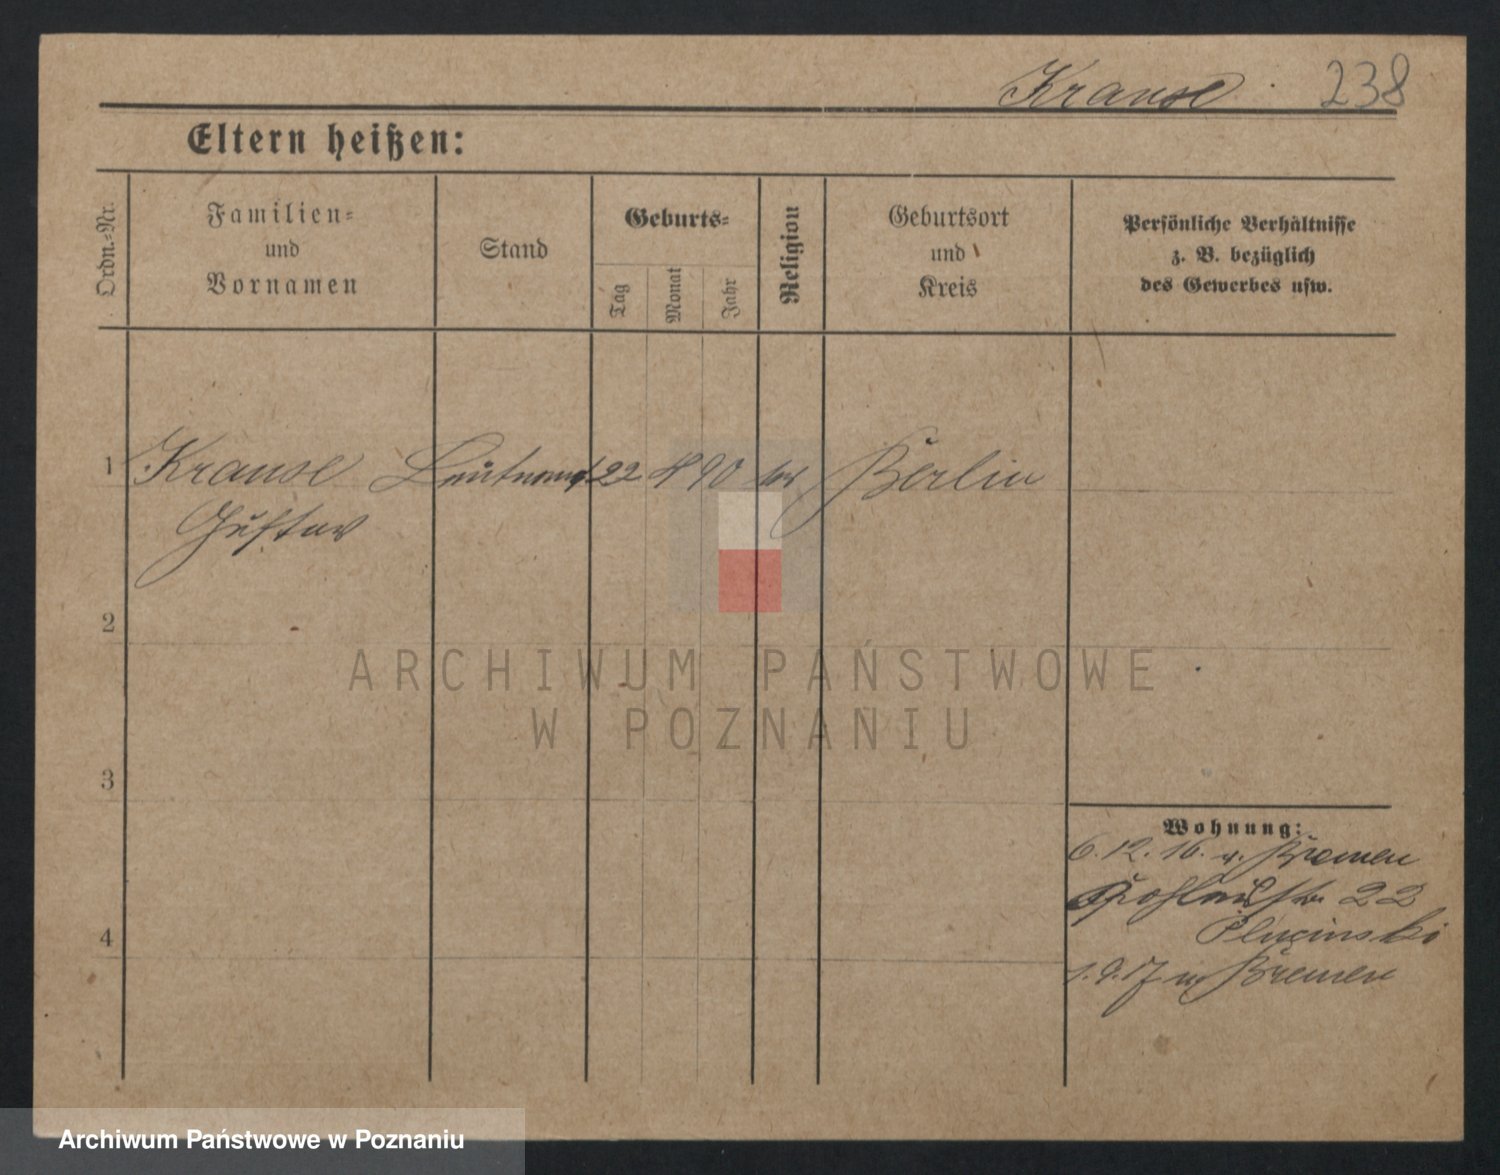 Krause. 238
Eltern heißen:
Ordn.-Nr.
Familien-
und
Vornamen
Stand
Geburts-
Tag
Monat
Jahr
Religion
Geburtsort
und
Kreis
Persönliche Verhältnisse
z. B. bezüglich
des Gewerbes usw.
1 Krause Leutnant 22 4 90 Berlin
Gustav
2
ARCHIWUM PAŃSTWOWE
W POZNANIU
3
Wohnung:
6.12.16. v. Bremen
22
4
Plucinski
1.9.17 n. Bremen
Archiwum Państwowe w Poznaniu